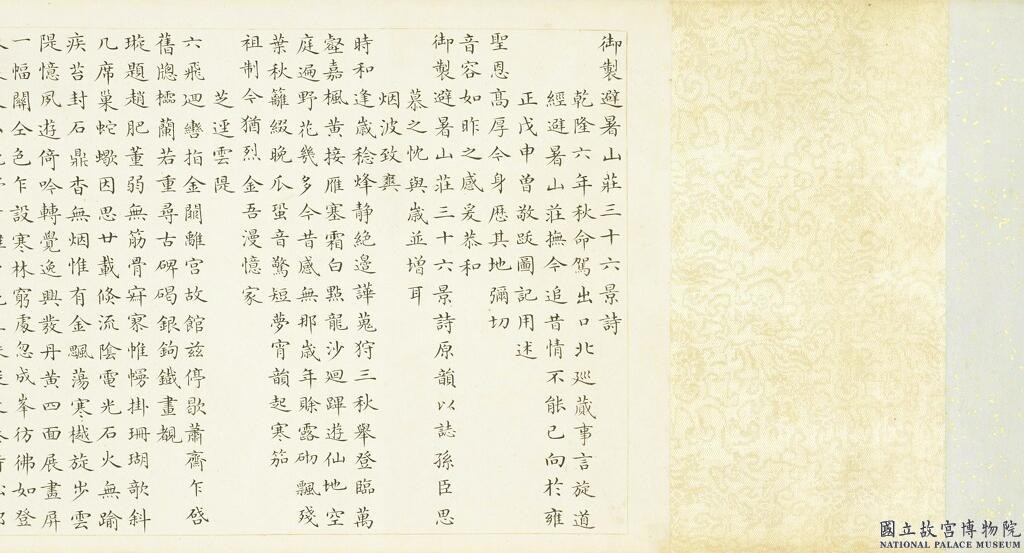 御製避暑山莊三十六景詩
乾隆六年秋命駕出口北廵蕆事言旋道
經避暑山莊撫今追昔情不能已向於雍
正戊申曾敬跋圖記用述
聖恩高厚今身歷其地彌切
音容如昨之感爰恭和
御製避暑山莊三十六景詩原韻以誌孫臣思
慕之忱與嵗並增耳
烟波致爽
時和逢嵗稔烽静絶邊譁蒐狩三秋舉登臨萬
壑嘉楓黄接雁塞霜白㸃龍沙廻蹕遊仙地空
庭遍野花幾多今昔感無那嵗年賒露砌飄殘
葉秋籬綴晚瓜蛩音驚短夢宵韻起寒笳
祖制今猶烈金吾漫憶家
芝逕雲隄
六飛廻轡指金闕離宫故館兹停歇蕭齋乍啓
舊牕櫺蘭若重尋古碑碣銀鉤鐵畫覩
璇題趙肥董弱無筋骨寮惟幔掛珊瑚歌斜
几席巢蛇蠍因思廿載倐流陰電光石火無踰
疾苔封石鼎杳無烟惟有金飄蕩寒樾旋步雲
隄憶夙遊倚吟轉覺逸興發丹黄四面展畫屏
一幅關仝色乍設寒林窮處忽成峯彷彿如登
國立故宮博物院
NATIONAL PALACE MUSEUM